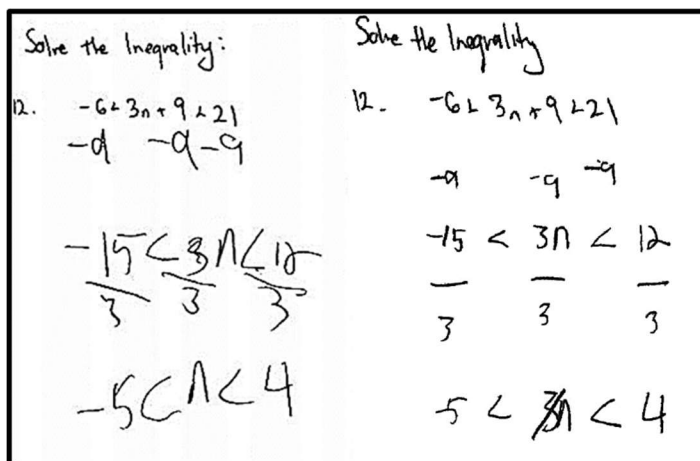 Solve the Inequality:
12. -6 < 3n + 9 < 21
-9 -9 -9
-15 < 3n < 12
3 3 3
-5 < n < 4
Solve the Inequality
12. -6 < 3n + 9 < 21
-9 -9 -9
-15 < 3n < 12
3 3 3
-5 < 3n < 4